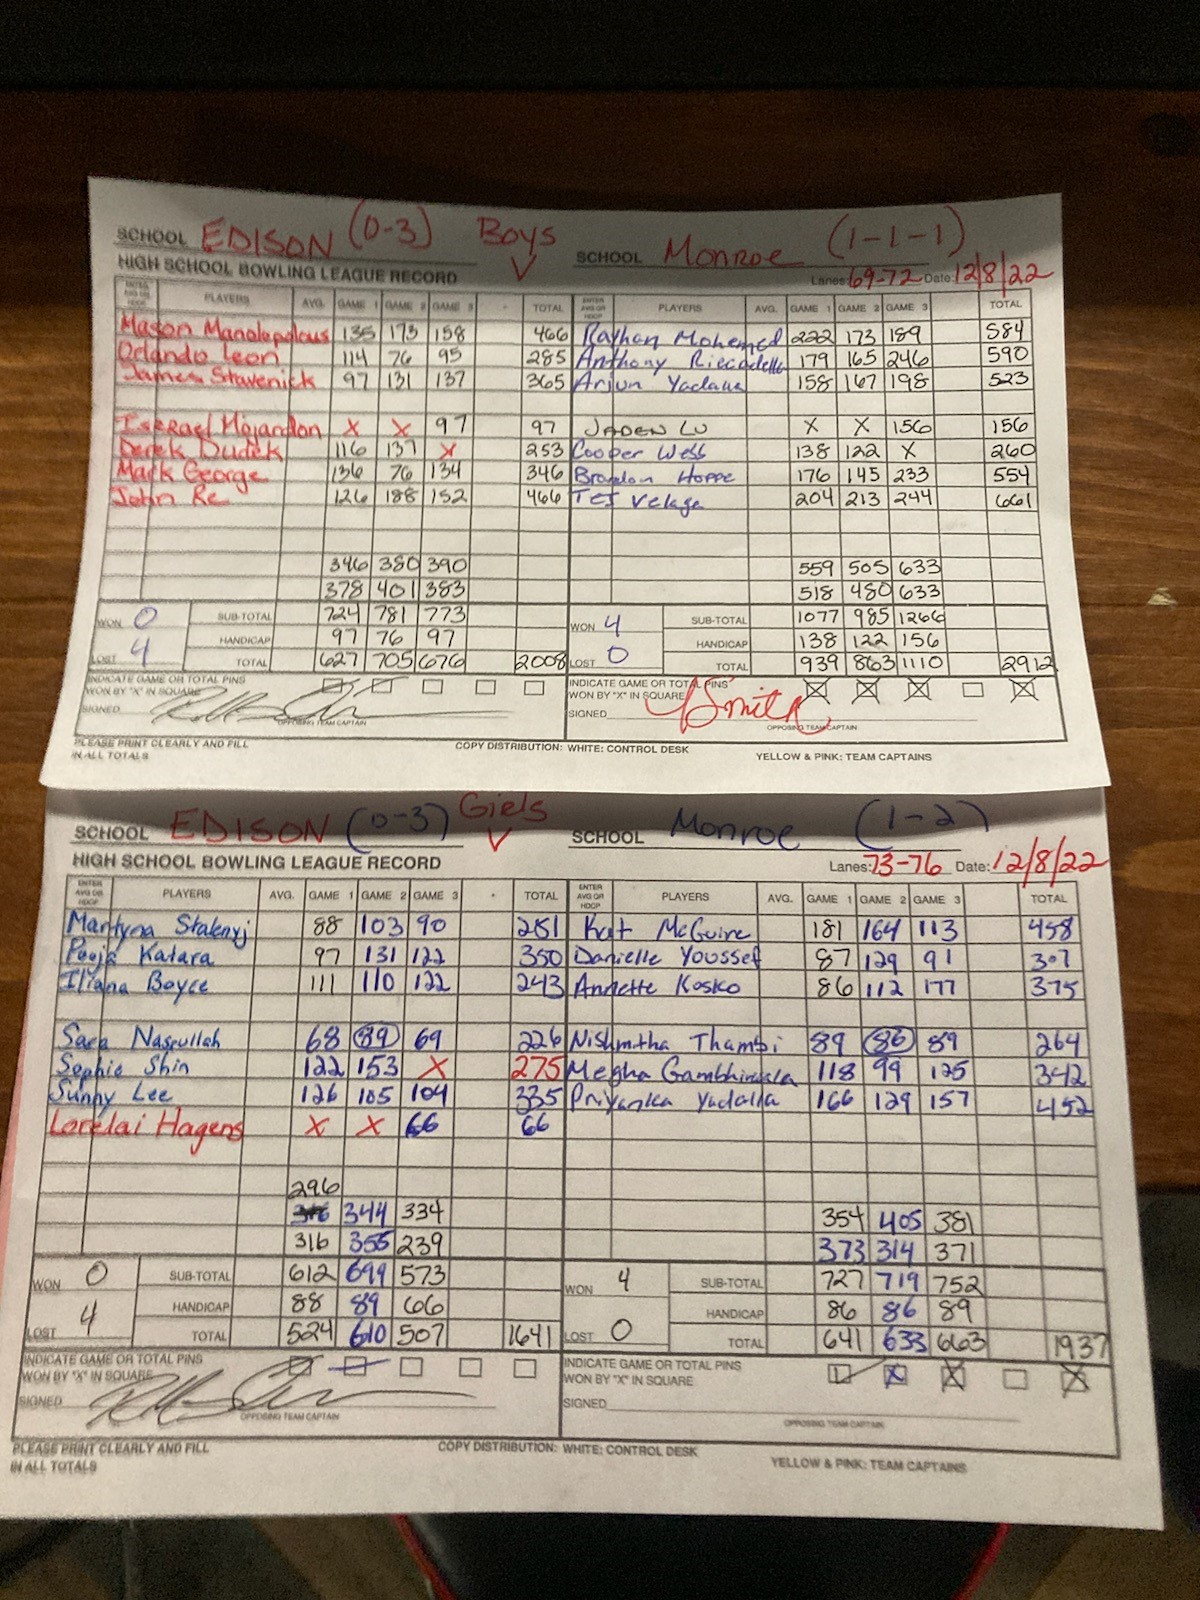 SCHOOL EDISON (0-3) Boys SCHOOL Monroe (1-1-1)
HIGH SCHOOL BOWLING LEAGUE RECORD Lanes: 69-72 Date: 12/8/22
ENTER AVG OR HDCP PLAYERS AVG. GAME 1 GAME 2 GAME 3 TOTAL ENTER AVG OR HDCP PLAYERS AVG. GAME 1 GAME 2 GAME 3 TOTAL
Mason Manolopolous 135 173 158 466 Rayhan Mohemed 222 173 189 584
Orlando Leon 114 76 95 285 Anthony Riccodella 179 165 246 590
James Stavenick 97 131 137 365 Arjun Yadava 158 167 198 523
Iserael Mojandon X X 97 97 JADEN LU X X 156 156
Derek Dudek 116 137 X 253 Cooper Webb 138 122 X 260
Mark George 136 76 134 346 Brandon Hoppe 176 145 233 554
John Re 126 188 152 466 Tej Velaga 204 213 244 661
346 380 390 559 505 633
378 401 383 518 480 633
WON 0 SUB-TOTAL 724 781 773 WON 4 SUB-TOTAL 1077 985 1266
HANDICAP 97 76 97 HANDICAP 138 122 156
LOST 4 TOTAL 627 705 676 2008 LOST 0 TOTAL 939 863 1110 2912
INDICATE GAME OR TOTAL PINS WON BY "X" IN SQUARE INDICATE GAME OR TOTAL PINS WON BY "X" IN SQUARE
SIGNED SIGNED JSmith
OPPOSING TEAM CAPTAIN OPPOSING TEAM CAPTAIN
PLEASE PRINT CLEARLY AND FILL IN ALL TOTALS COPY DISTRIBUTION: WHITE: CONTROL DESK YELLOW & PINK: TEAM CAPTAINS
SCHOOL EDISON (0-3) Girls SCHOOL Monroe (1-2)
HIGH SCHOOL BOWLING LEAGUE RECORD Lanes: 73-76 Date: 12/8/22
ENTER AVG OR HDCP PLAYERS AVG. GAME 1 GAME 2 GAME 3 TOTAL ENTER AVG OR HDCP PLAYERS AVG. GAME 1 GAME 2 GAME 3 TOTAL
Martyna 88 103 90 281 Kat McGuire 181 164 113 458
Pooja Katara 97 131 122 350 Danielle Youssef 87 129 91 307
Iliana Boyce 111 110 122 243 Annette Kosko 86 112 177 375
Sara Nasrullah 68 89 69 226 Nishmitha Thambi 89 86 89 264
Sophie Shin 122 153 X 275 Megha Gambhirwala 118 99 125 342
Sunny Lee 126 105 104 335 Priyanka Yadalla 166 129 157 452
Lorelai Hagens X X 66 66
296
344 334 354 405 381
316 355 239 373 314 371
WON 0 SUB-TOTAL 612 699 573 WON 4 SUB-TOTAL 727 719 752
HANDICAP 88 89 66 HANDICAP 86 86 89
LOST 4 TOTAL 524 610 507 1641 LOST 0 TOTAL 641 633 663 1937
INDICATE GAME OR TOTAL PINS WON BY "X" IN SQUARE INDICATE GAME OR TOTAL PINS WON BY "X" IN SQUARE
SIGNED SIGNED
OPPOSING TEAM CAPTAIN OPPOSING TEAM CAPTAIN
PLEASE PRINT CLEARLY AND FILL IN ALL TOTALS COPY DISTRIBUTION: WHITE: CONTROL DESK YELLOW & PINK: TEAM CAPTAINS